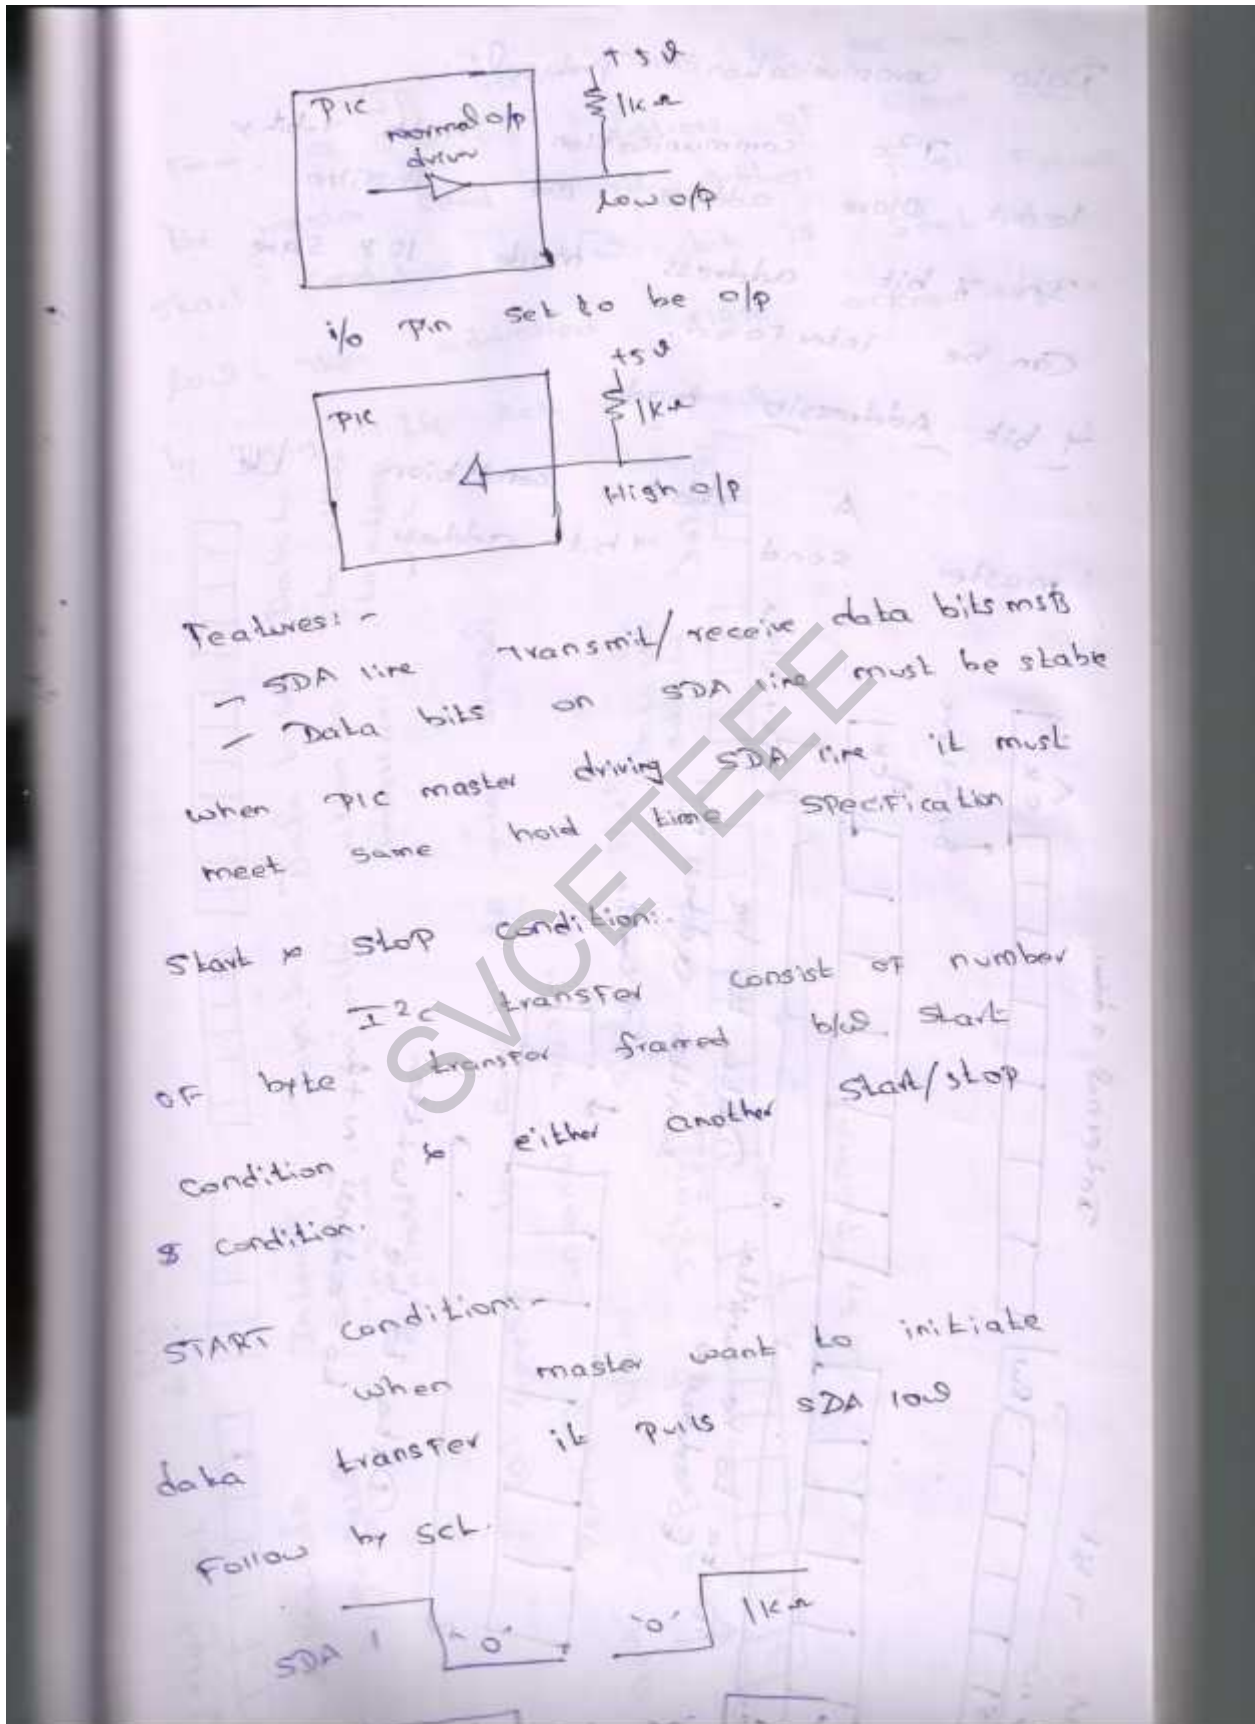 +5V
PIC
1KΩ
normal o/p
driver
Low o/p
i/o Pin set to be o/p
+5V
PIC
1KΩ
High o/p
Features:-
- SDA line transmit/receive data bits MSB
- Data bits on SDA line must be stable
when PIC master driving SDA line it must
meet same hold time specification
Start & Stop condition:-
I²C transfer consist of number
of byte transfer framed b/w start
condition & either another start/stop
condition.
START condition:-
when master want to initiate
data transfer it pulls SDA low
Follow by SCL.
SDA 1 "0" '0' 1KΩ
SVCETEEE